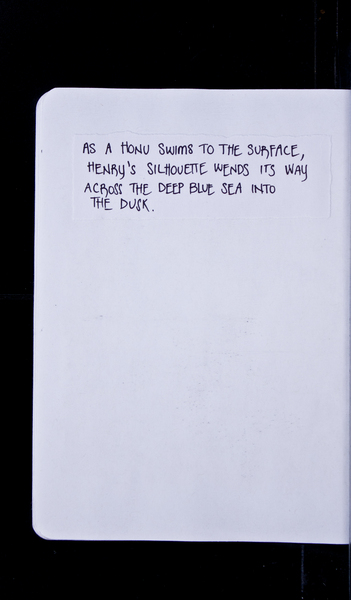 AS A HONU SWIMS TO THE SURFACE,
HENRY'S SILHOUETTE WENDS ITS WAY
ACROSS THE DEEP BLUE SEA INTO
THE DUSK.